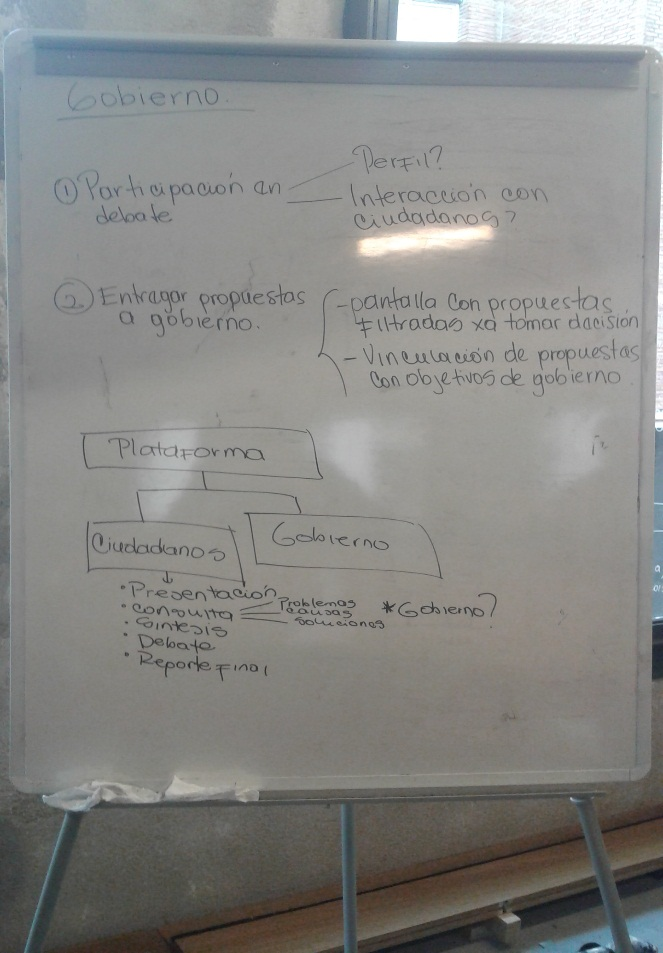 Gobierno.
① Participación en
debate
Perfil?
Interacción con
ciudadanos?
② Entregar propuestas
a gobierno.
- pantalla con propuestas
filtradas xa tomar decisión
- Vinculación de propuestas
con objetivos de gobierno
Plataforma
Ciudadanos
Gobierno
• Presentación
• consulta
Problemas
causas
soluciones
* Gobierno?
• Síntesis
• Debate
• Reporte Final